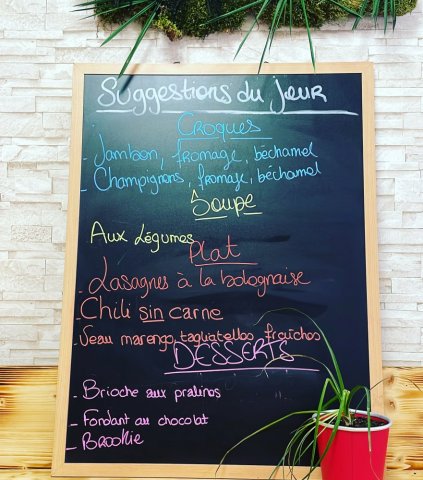 Suggestions du jour
Croques
- Jambon, fromage, béchamel
- Champignons, fromage, béchamel
Soupe
Aux Légumes
Plat
- Lasagnes à la bolognaise
- Chili sin carne
- Veau marengo tagliatelles fraîches
DESSERTS
- Brioche aux pralines
- Fondant au chocolat
- Brookie